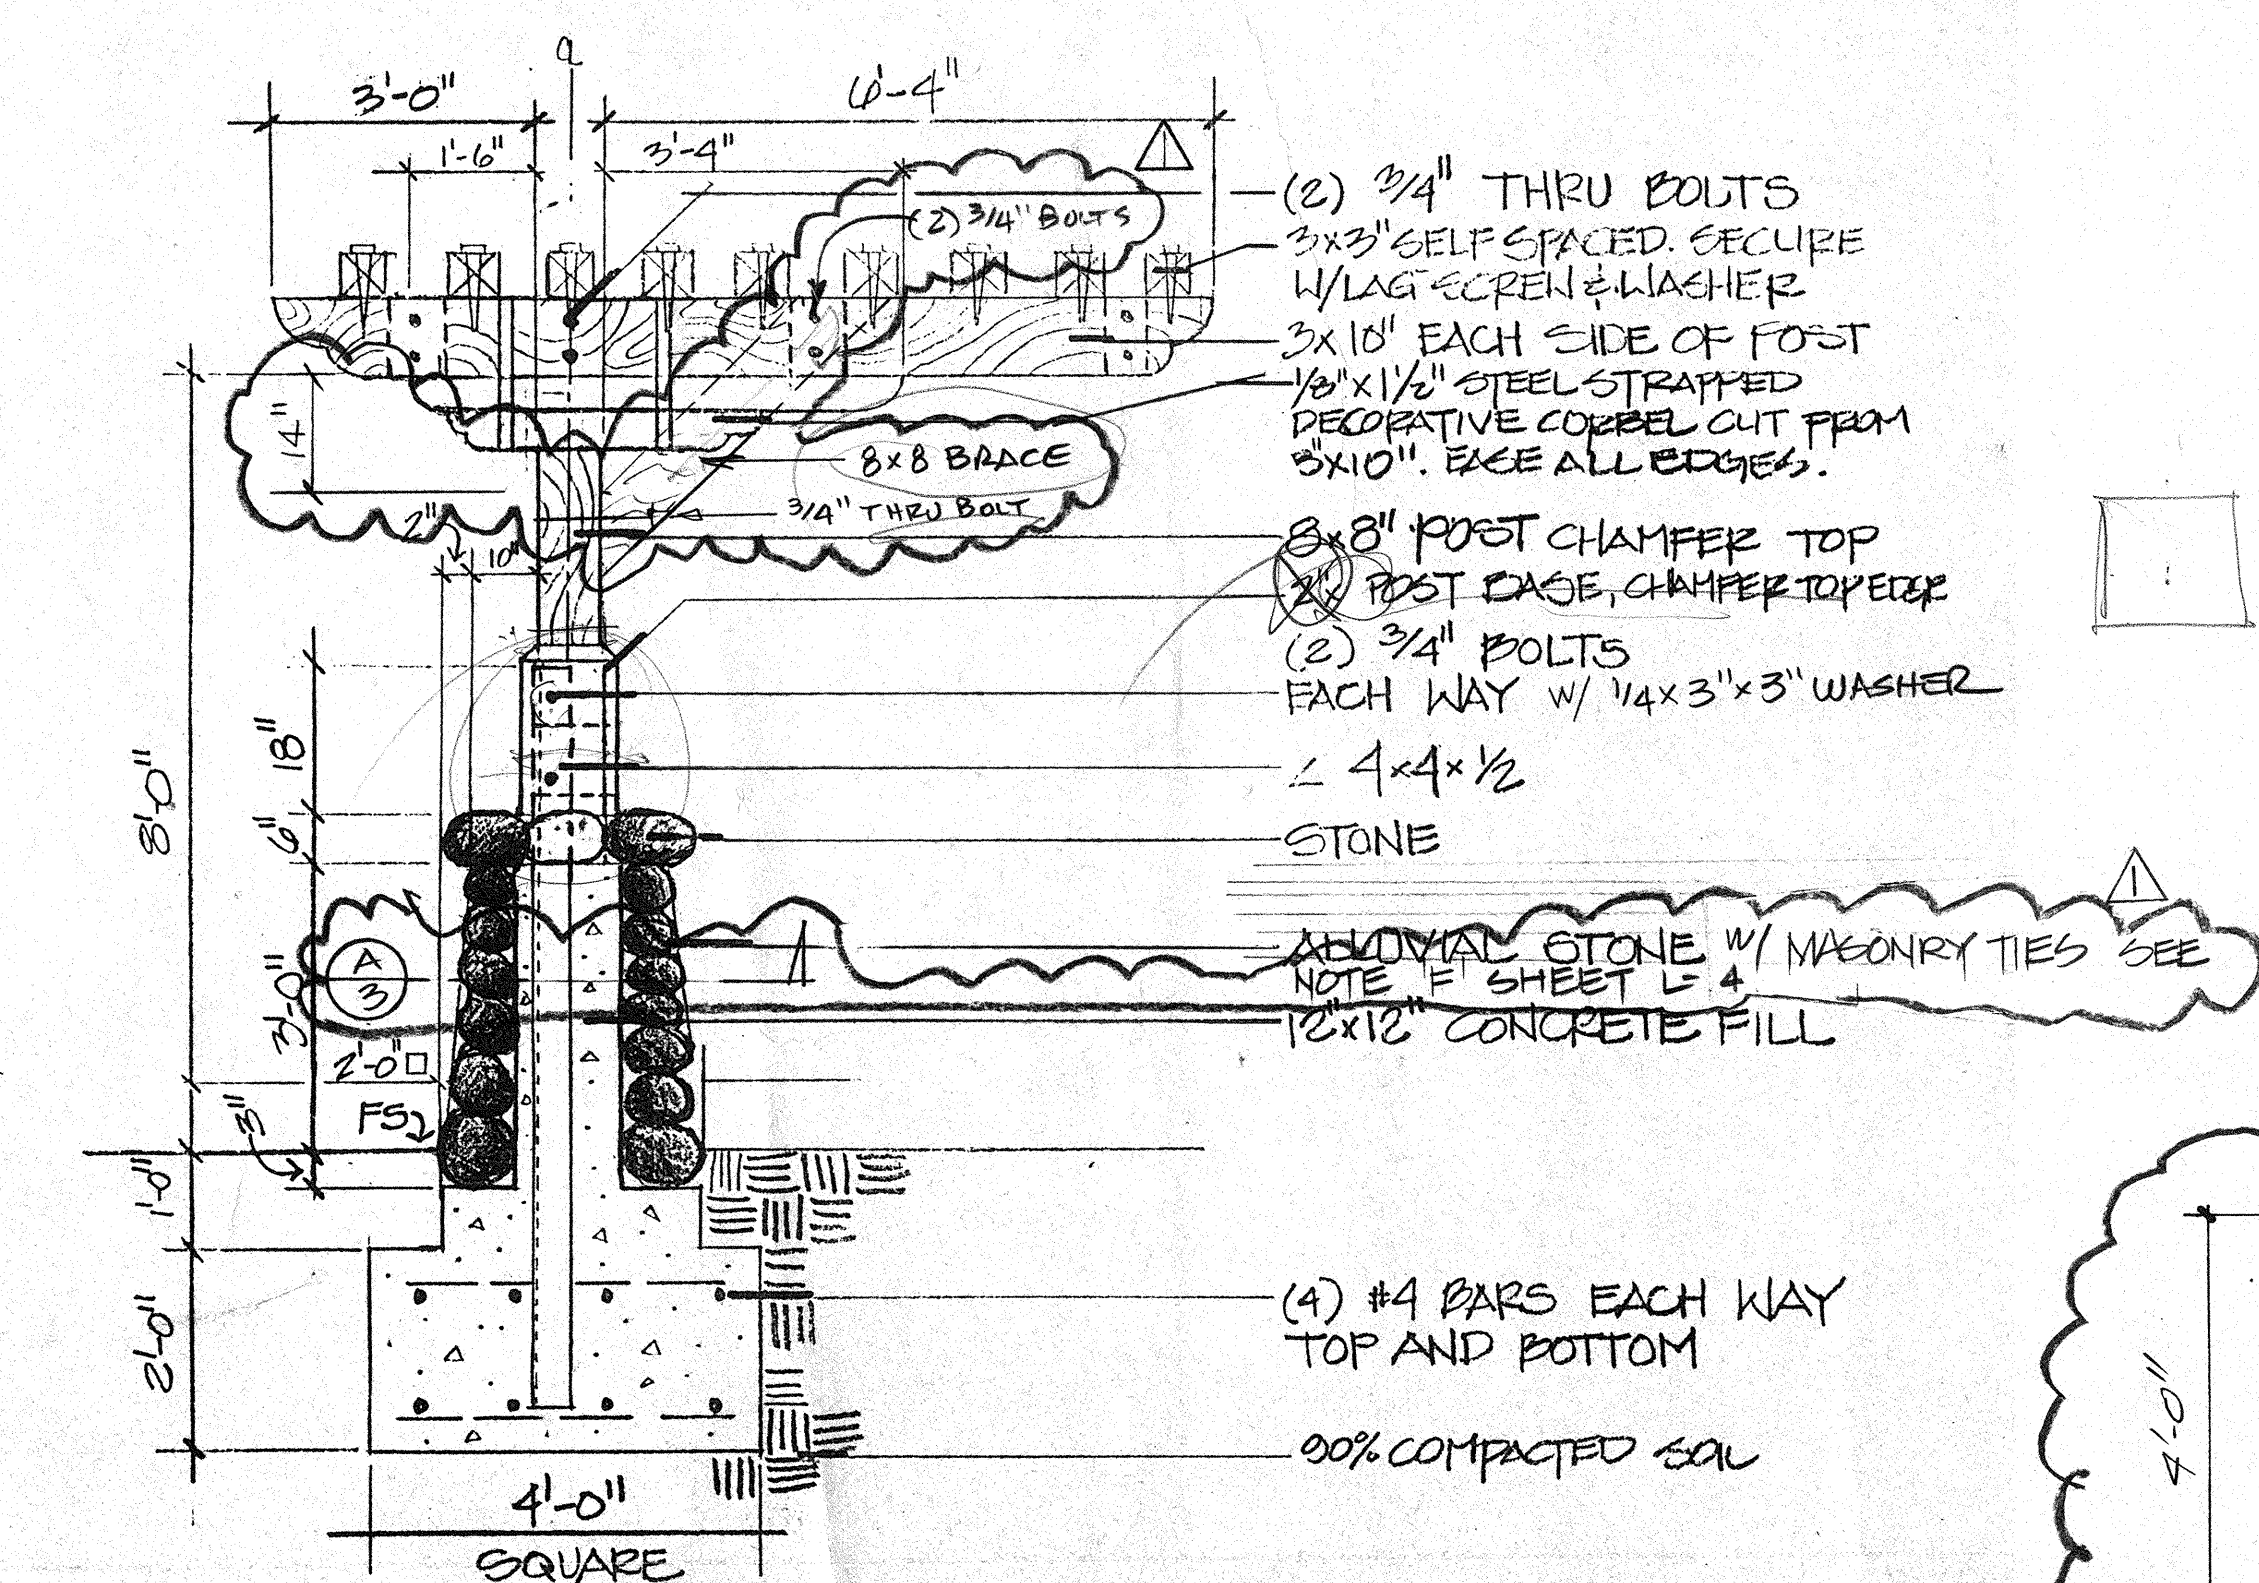 ℄
3'-0"
6'-4"
1'-6"
3'-4"
1
(2) 3/4" BOLTS
(2) 3/4" THRU BOLTS
3x3" SELF SPACED. SECURE
W/LAG SCREW & WASHER
3x10" EACH SIDE OF POST
1/8"x1 1/2" STEEL STRAPPED
DECORATIVE CORBEL CUT FROM
3"x10". EASE ALL EDGES.
14"
8x8 BRACE
3/4" THRU BOLT
2"
10"
8x8" POST CHAMFER TOP
2x POST BASE, CHAMFER TOP EDGE
(2) 3/4" BOLTS
EACH WAY W/ 1/4x3"x3" WASHER
18"
8'-0"
∠ 4x4x1/2
6"
STONE
1
ALLUVIAL STONE W/ MASONRY TIES SEE
NOTE "F" SHEET L-4
A
3
3'-0"
12"x12" CONCRETE FILL
2'-0"□
FS
3"
1'-0"
(4) #4 BARS EACH WAY
TOP AND BOTTOM
2'-0"
4'-0"
90% COMPACTED SOIL
4'-0"
SQUARE